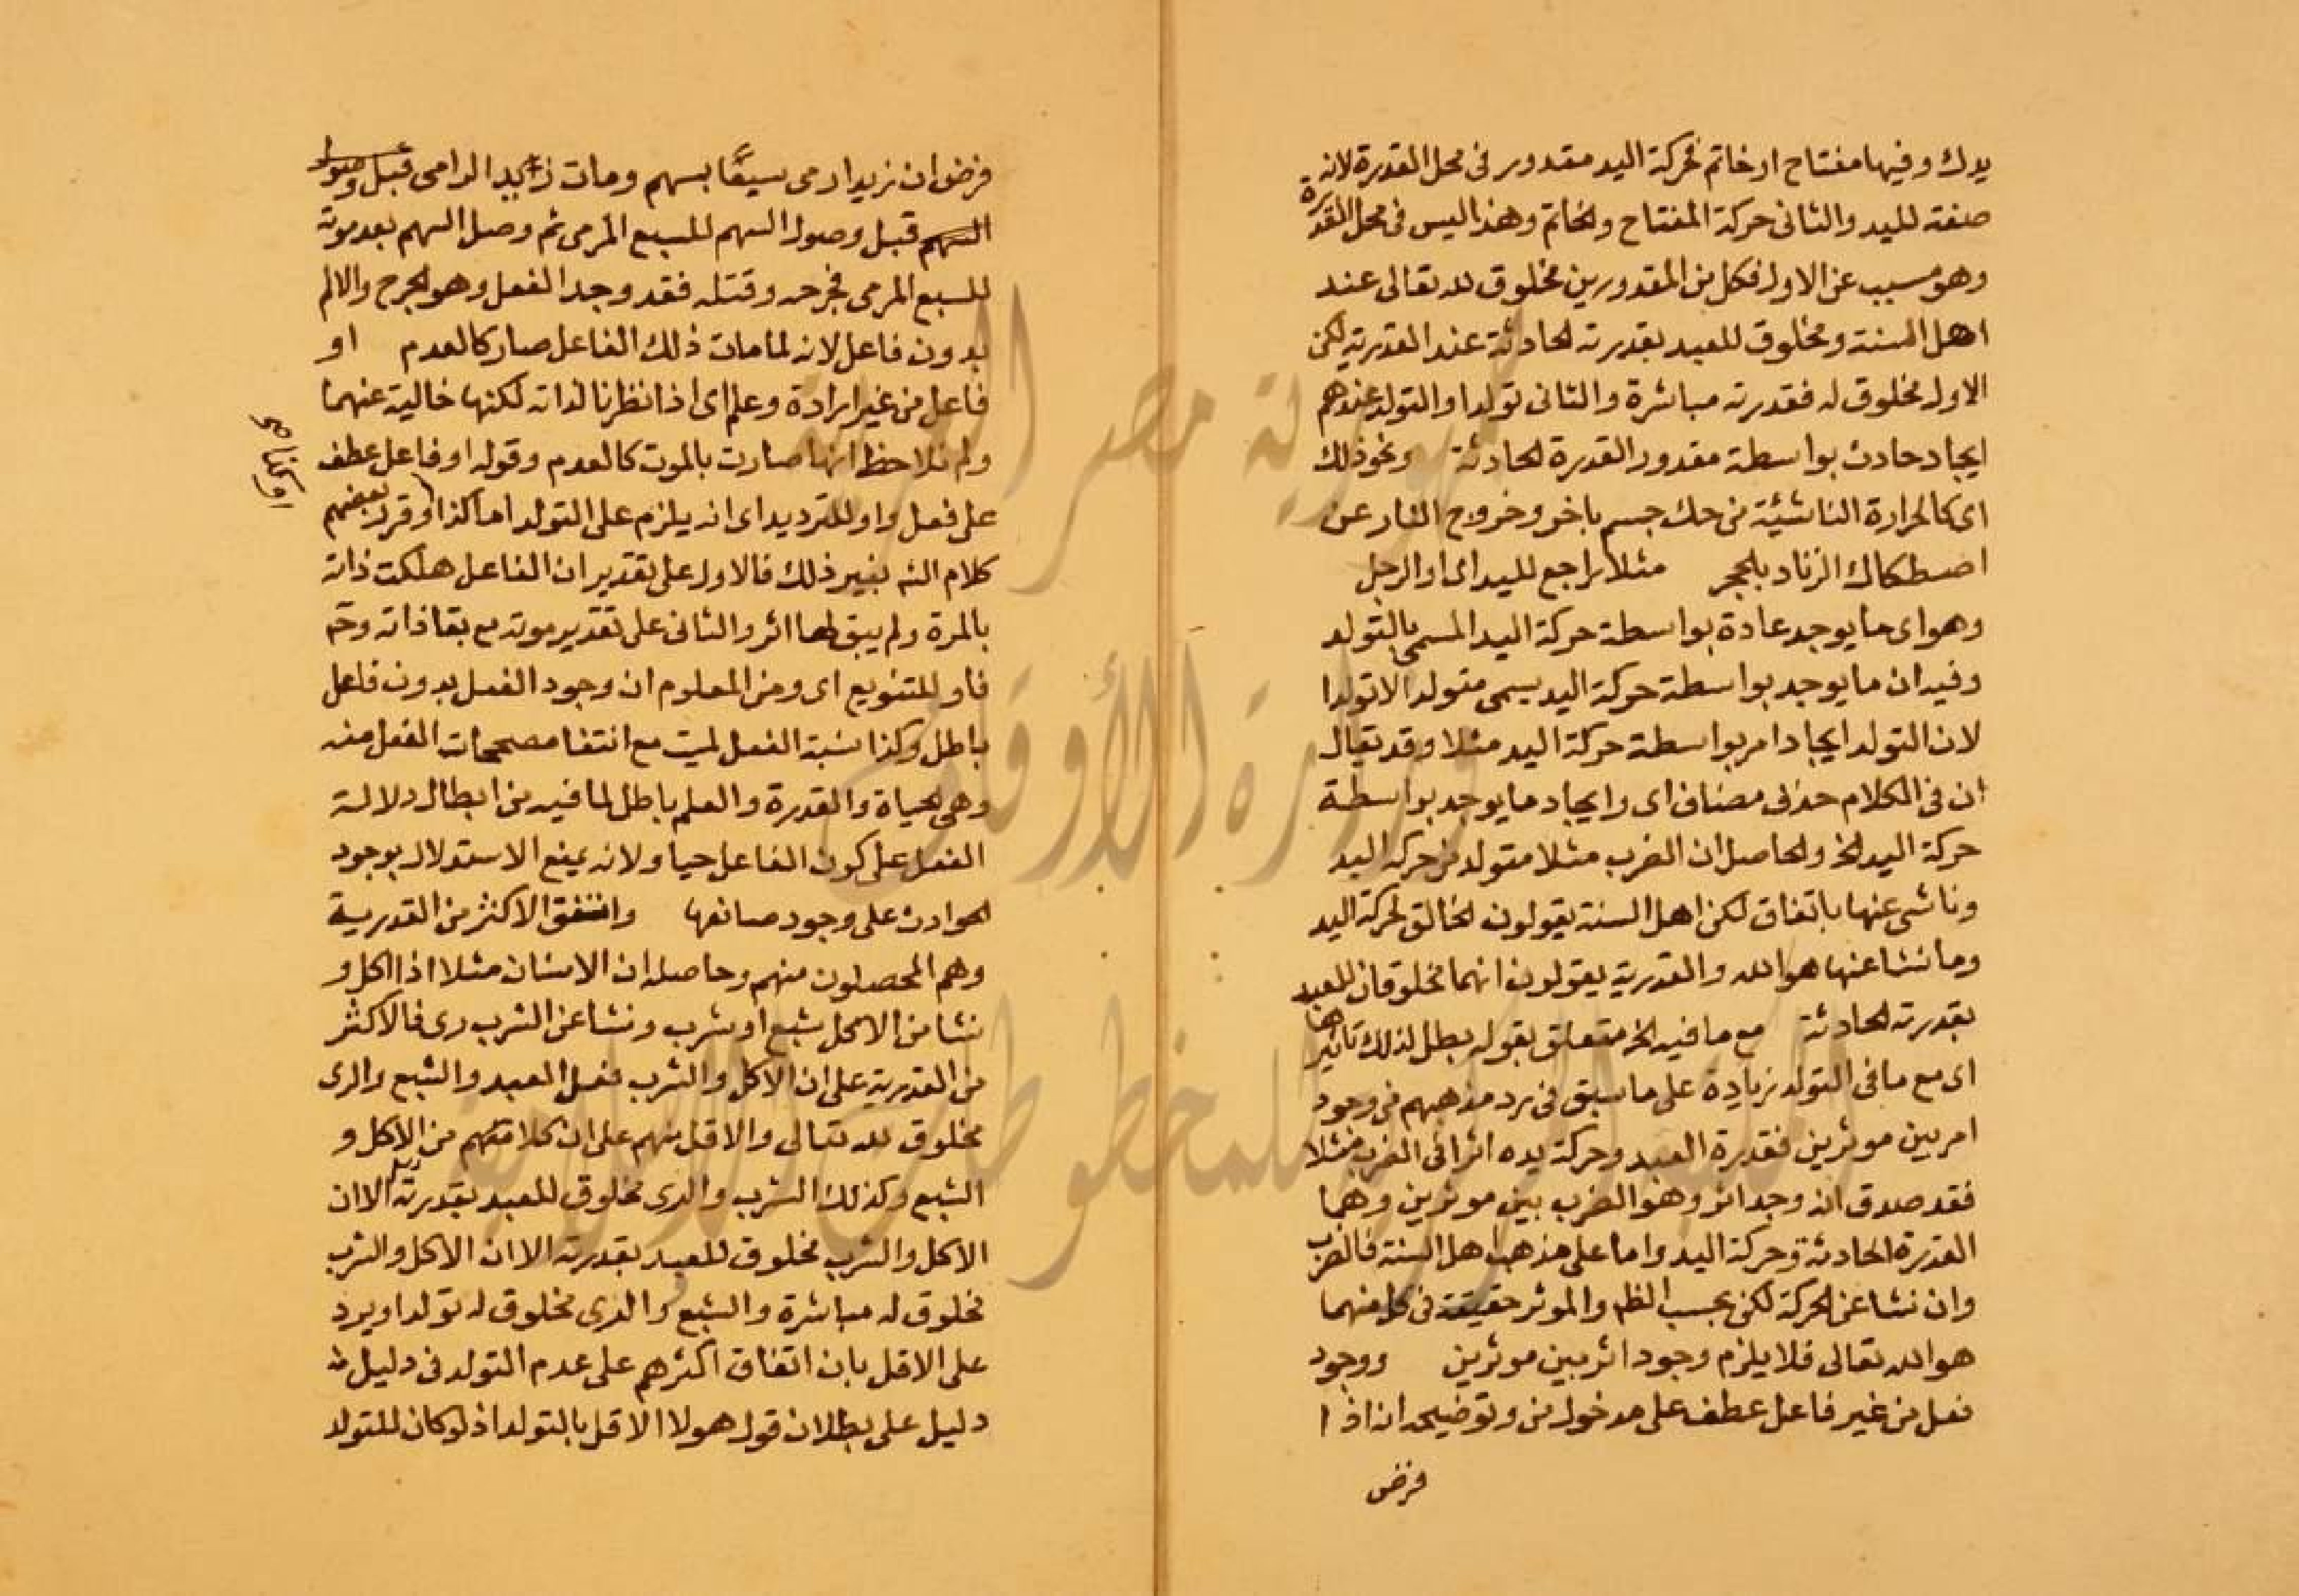 يدك وفيها مفتاح او خاتم فحركة اليد مقدور في محل القدرة لانه
صفة لليد والثاني حركة المفتاح والخاتم وهذا ليس في محل القدرة
وهو مسبب عن الاول فكل من المقدورين مخلوق لله تعالى عند
اهل السنة ومخلوق للعبد بقدرته الحادثة عند القدرية لكن
الاول مخلوق له فقدرته مباشرة والثاني تولدا والتولد عندهم
ايجاد حادث بواسطة مقدور القدرة الحادثة ونحو ذلك
اى كالحرارة الناشئة من حك جسم باخر وخروج النار عن
اصطكاك الزناد بالحجر مثلا راجع لليد اى او الرجل
وهو اى ما يوجد عادة بواسطة حركة اليد المسمى بالتولد
وفيه ان ما يوجد بواسطة حركة اليد يسمى متولدا لا تولدا
لان التولد ايجاد امر بواسطة حركة اليد مثلا وقد يقال
ان في الكلام حذف مضاف اى وايجاد ما يوجد بواسطة
حركة اليد الخ والحاصل ان الضرب مثلا متولد من حركة اليد
وناشى عنها باتفاق لكن اهل السنة يقولون الخالق لحركة اليد
وما نشا عنها هو الله والقدرية يقولون انهما مخلوقان للعبد
بقدرته الحادثة مع ما فيه الخ متعلق بقوله بطل لذلك تاثيرها
اى مع ما في التولد زيادة على ما سبق في رد مذهبهم من وجود
امر بين موثرين فقدرة العبد وحركة يده اثرا في الضرب مثلا
فقد صدق انه وجد اثر وهو الضرب بين موثرين وهما
القدرة الحادثة وحركة اليد واما على مذهب اهل السنة فالضرب
وان نشا عن الحركة لكن بحسب الظ والموثر حقيقة في كل منهما
هو الله تعالى فلا يلزم وجود اثر بين موثرين ووجود
فعل من غير فاعل عطف على مدخول من وتوضيحه انه اذا
فرض
فرض ان زيدا رمى سبعا بسهم ومات زيد الرامى قبل وصول
السهم قبل وصول السهم للسبع المرمى ثم وصل السهم بعد موته
للسبع المرمى فجرحه وقتله فقد وجد الفعل وهو الجرح والالم
بدون فاعل لانه لما مات ذلك الفاعل صار كالعدم او
فاعل من غير ارادة وعلم اى اذا نظرنا لذاته لكنها خالية عنهما
ولم نلاحظ انها صارت بالموت كالعدم وقوله او فاعل عطف
على فعل واو للترديد اى انه يلزم على التولد اما كذا او قرر بعضهم
كلام الش بغير ذلك فالاول على تقدير ان الفاعل هلكت ذاته
بالمرة ولم يبق لها اثر والثاني على تقدير موته مع بقا ذاته وح
فاو للتنويع اى ومن المعلوم ان وجود الفعل بدون فاعل
باطل وكذا نسبة الفعل لميت مع انتفا مصححات الفعل منه
وهى الحياة والقدرة والعلم باطل لما فيه من ابطال دلالة
الفعل على كون الفاعل حيا ولانه يمنع الاستدلال بوجود
الحوادث على وجود صانعها واتفق الاكثر من القدرية
وهم المحصلون منهم وحاصله ان الانسان مثلا اذا اكل و
نشا من الاكل شبع او شرب ونشا عن الشرب رى فالاكثر
من القدرية على ان الاكل والشرب فعل العبد والشبع والرى
مخلوق لله تعالى والاقل منهم على ان كلا منهم من الاكل و
الشبع وكذلك الشرب والرى مخلوق للعبد بقدرته الا ان
الاكل والشرب مخلوق للعبد بقدرته الا ان الاكل والشرب
مخلوق له مباشرة والشبع والرى مخلوق له تولدا ويرد
على الاقل بان اتفاق اكثرهم على عدم التولد في دليل
دليل على بطلان قول هولا الاقل بالتولد اذ لو كان للتولد